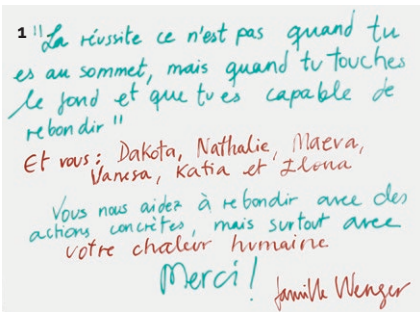 1 "La réussite ce n'est pas quand tu
es au sommet, mais quand tu touches
le fond et que tu es capable de
rebondir"
Et vous : Dakota, Nathalie, Maeva,
Vanesa, Katia et Ilona
Vous nous aidez à rebondir avec des
actions concrètes, mais surtout avec
votre chaleur humaine
Merci !
famille Wenger